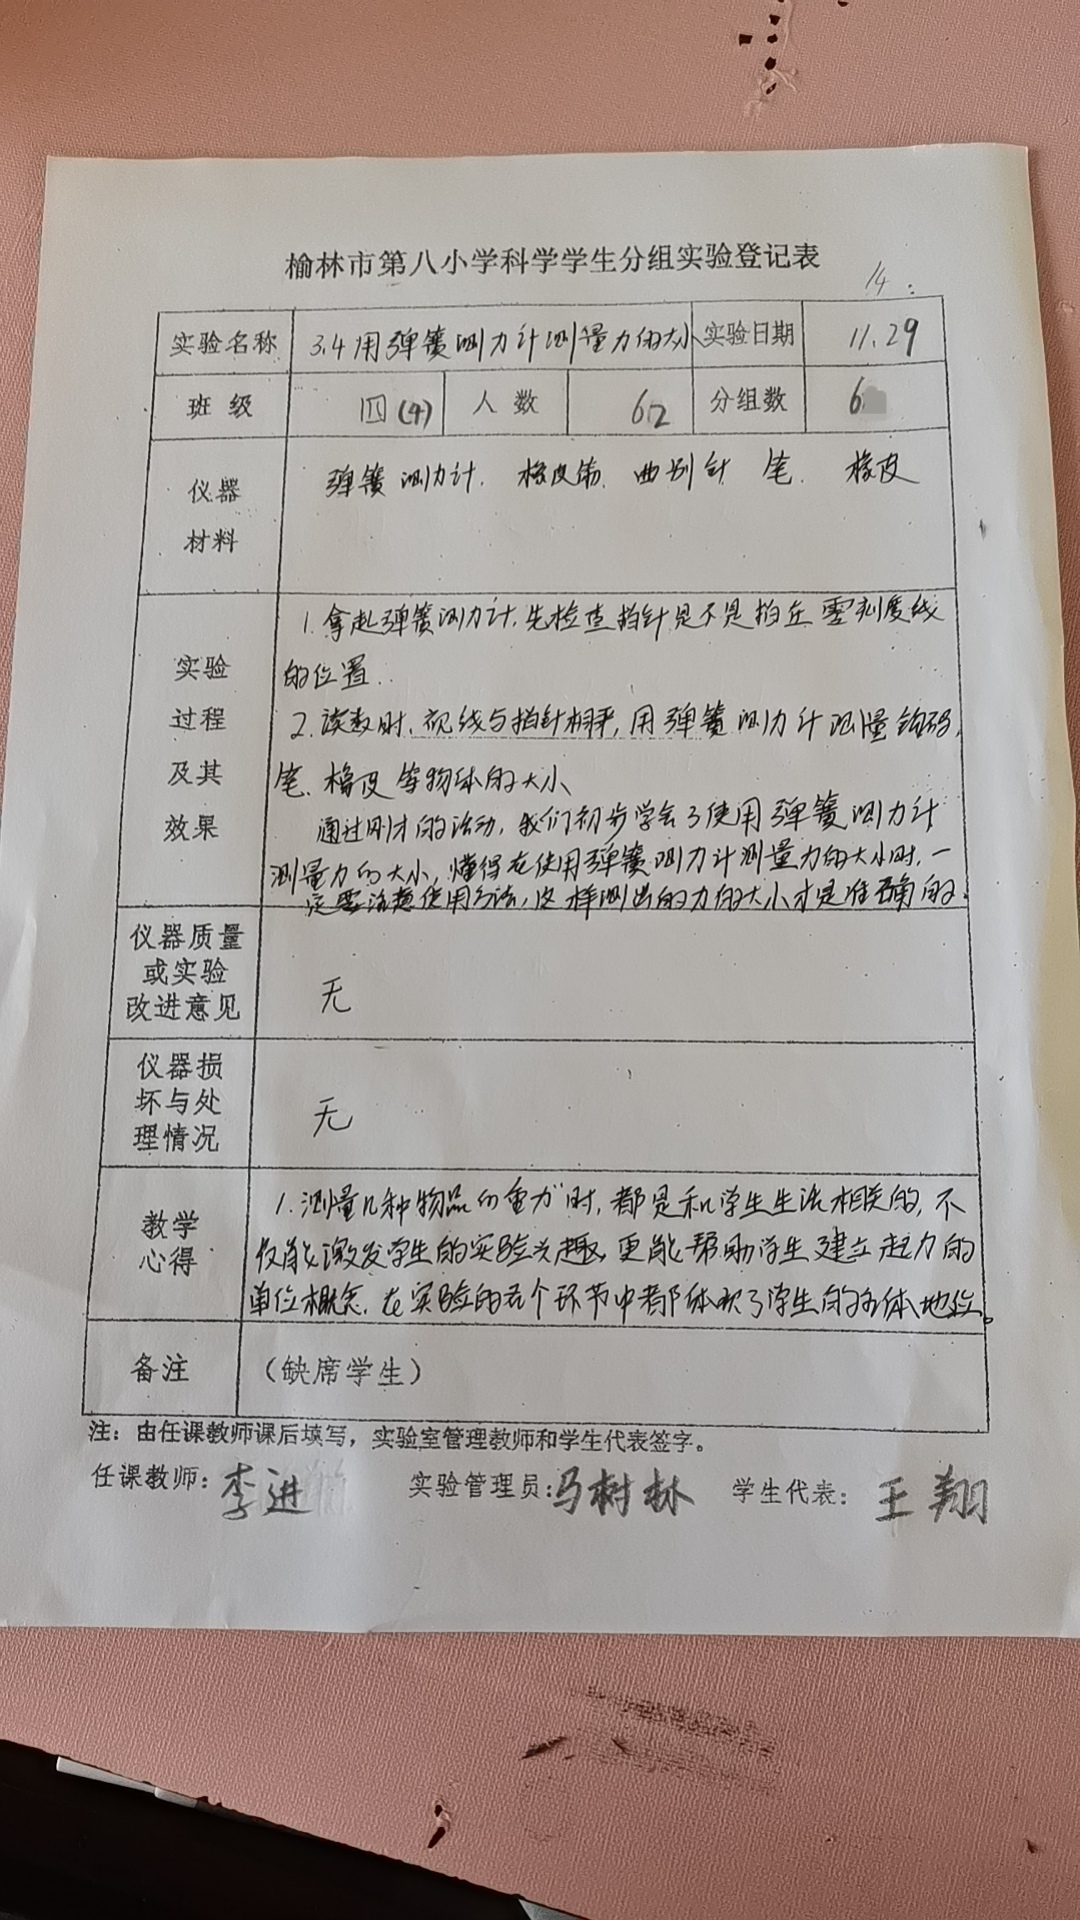 榆林市第八小学科学学生分组实验登记表
14
实验名称 3.4用弹簧测力计测量力的大小 实验日期 11.29
班级 四(4) 人数 62 分组数 6
仪器 弹簧测力计. 橡皮筋. 曲别针 笔. 橡皮
材料
1.拿起弹簧测力计,先检查指针是不是指在零刻度线
实验 的位置.
过程 2.读数时,视线与指针相平,用弹簧测力计测量钩码,
及其 笔、橡皮等物体的大小
效果 通过刚才的活动,我们初步学会了使用弹簧测力计
测量力的大小,懂得在使用弹簧测力计测量力的大小时,一
定要注意使用方法,这样测出的力的大小才是准确的.
仪器质量
或实验
改进意见 无
仪器损
坏与处 无
理情况
1.测量几种物品的重力时,都是和学生生活相关的,不
教学 仅能激发学生的实验兴趣,更能帮助学生建立起力的
心得 单位概念.在实验的各个环节中都体现了学生的主体地位。
备注 （缺席学生）
注：由任课教师课后填写，实验室管理教师和学生代表签字。
任课教师：李进 实验管理员:马树林 学生代表：王翔